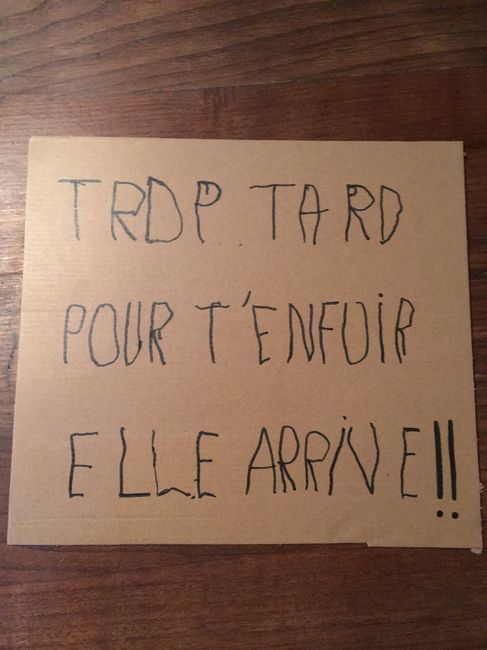 TROP TARD
POUR T'ENFUIR
ELLE ARRIVE!!